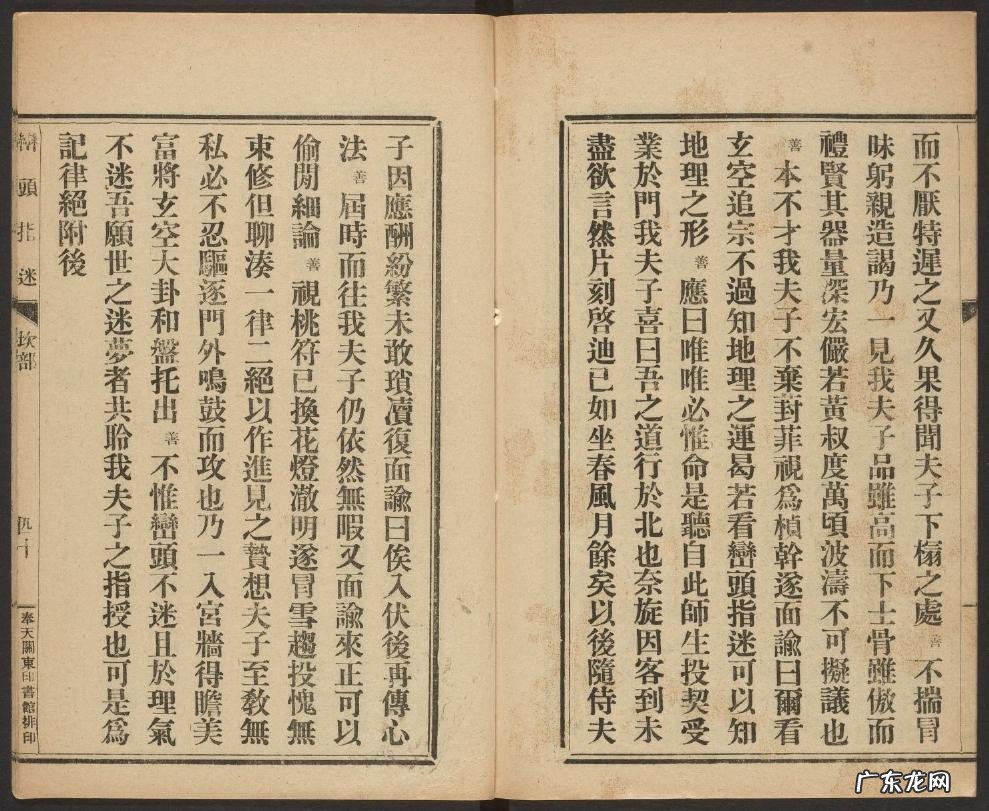 而不厭特遲之又久果得聞夫子下榻之處善不揣冒
昧躬親造謁乃一見我夫子品雖高而下士骨雖傲而
禮賢其器量深宏儼若黃叔度萬頃波濤不可擬議也
善本不才我夫子不棄葑菲視爲楨幹遂面諭曰爾看
玄空追宗不過知地理之運曷若看巒頭指迷可以知
地理之形善應曰唯唯必惟命是聽自此師生投契受
業於門我夫子喜曰吾之道行於北也奈旋因客到未
盡欲言然片刻啓迪已如坐春風月餘矣以後隨侍夫
子因應酬紛繁未敢瑣凟復面諭曰俟入伏後再傳心
法善屆時而往我夫子仍依然無暇又面諭來正可以
偷閒細論善視桃符已換花燈澈明遂冒雪趨投愧無
束修但聊湊一律二絕以作進見之贄想夫子至敎無
私必不忍驅逐門外鳴鼓而攻也乃一入宮牆得瞻美
富將玄空大卦和盤托出善不惟巒頭不迷且於理氣
不迷吾願世之迷夢者共聆我夫子之指授也可是爲
記律絕附後
巒頭指迷 坎部 四十 奉天關東印書館排印
广东龙网